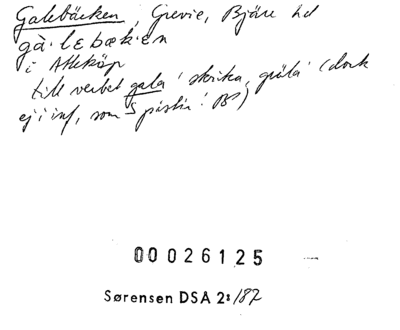 Galebäcken, Grevie, Bjäre hd
gà·lebæk·en
i Atteköp
till verbet gala 'skrika, gråla' (dock
ej i inf, som S påstår! BP)
00026125
Sørensen DSA 2: 187